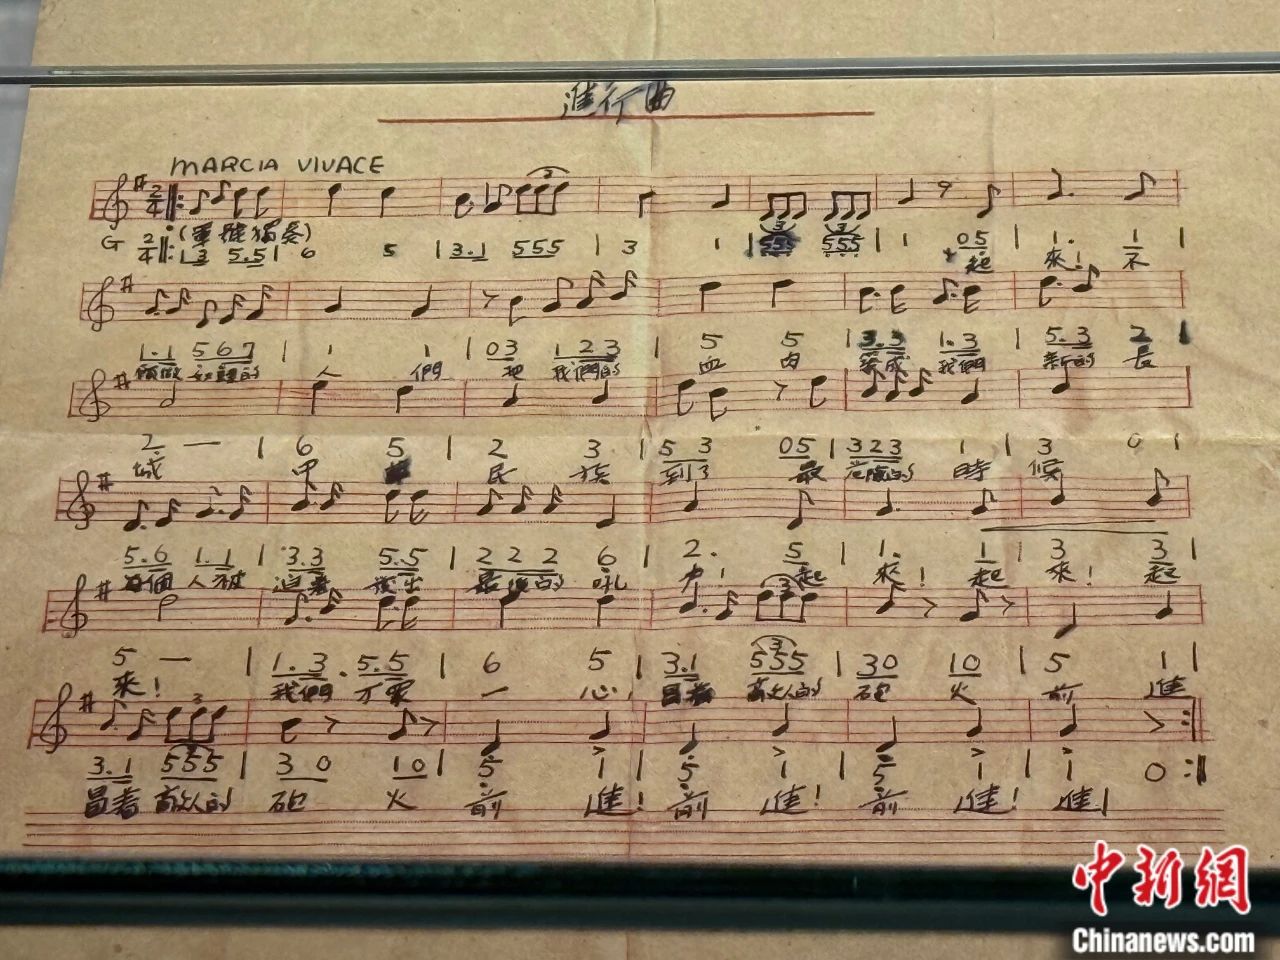 進行曲
MARCIA VIVACE
2/4 3
G 2/4 (軍號獨奏)
1 3 5.5 | 6 5 | 3.1 555 | 3 1 | 555 555 | 1 05 | 1. 1 |
起 來! 不
1.1 567 | 1 1 | 03 123 | 5 5 | 3.3 1.3 | 5.3 2 |
願做奴隸的 人 們 把 我們的 血 肉 築成 我們 新的 長
2 — | 6 5 | 2 3 | 5 3 05 | 323 1 | 3 0 |
城 中 民 族 到了 最 危險的 時 候
5.6 1.1 | 3.3 5.5 | 2 2 2 6 | 2. 5 | 1. 1 | 3 3 |
每個 人被 迫着 發出 最後的 吼 力! 起 來! 起 來! 起
3
5 — | 1.3. 5.5 | 6 5 | 3.1 555 | 30 10 | 5 1 |
來! 我們 万眾 一 心 冒着 敵人的 砲 火 前 進
3
3.1 555 | 3 0 10 | 5 1 | 5 1 | 5 1 | 1 0 :||
冒着 敵人的 砲 火 前 進! 前 進! 前 進! 進!
中新網
Chinanews.com